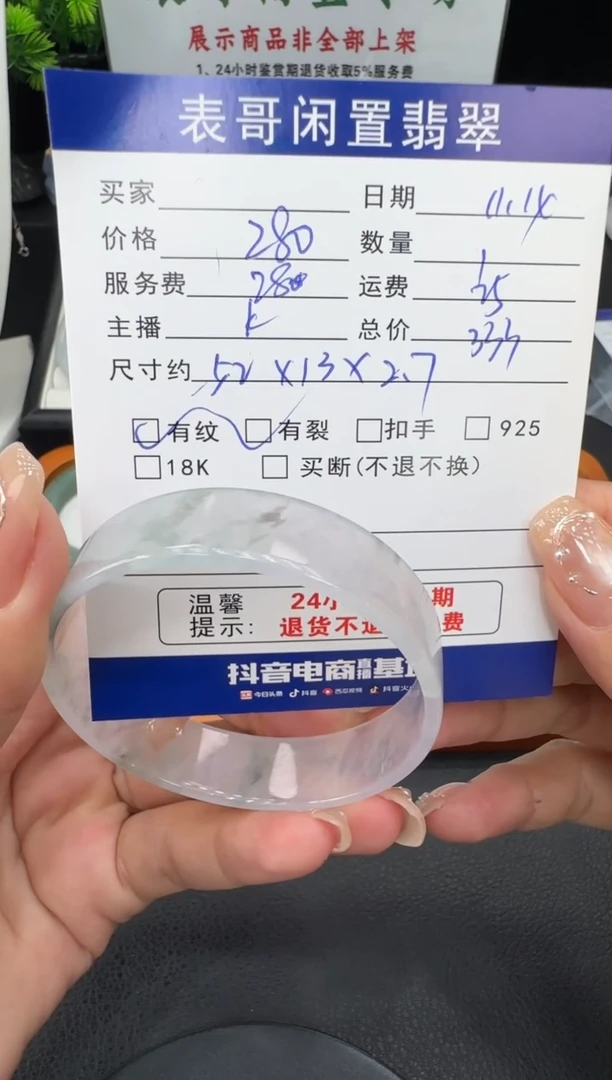 展示商品非全部上架
1、24小时鉴赏期退货收取5%服务费
表哥闲置翡翠
买家 日期 11.14
价格 280 数量 1
服务费 28 运费 25
主播 K 总价 333
尺寸约 52×13×2.7
有纹 有裂 扣手 925
18K 买断(不退不换)
温馨 24 期
提示: 退货不退 费
抖音电商直播基
今日头条 抖音 西瓜视频 抖音火